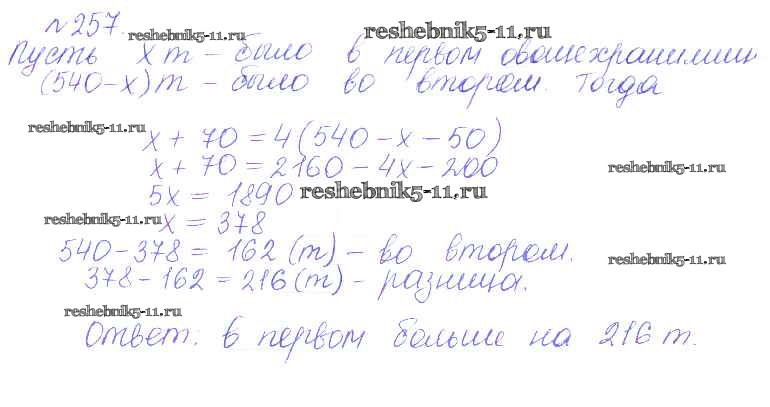 №257. reshebnik5-11.ru reshebnik5-11.ru
Пусть x т - было в первом овощехранилищ
(540-x) т - было во втором. Тогда
reshebnik5-11.ru
x + 70 = 4(540 - x - 50)
x + 70 = 2160 - 4x - 200 reshebnik5-11.ru
5x = 1890 reshebnik5-11.ru
reshebnik5-11.ru x = 378
540 - 378 = 162 (т) - во втором.
reshebnik5-11.ru
378 - 162 = 216 (т) - разница.
reshebnik5-11.ru
Ответ: в первом больше на 216 т.